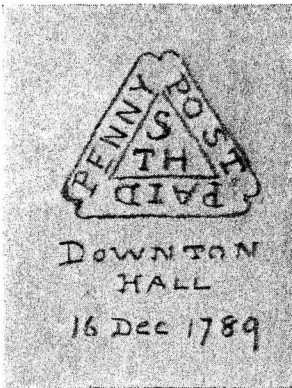 PENNY POST PAID
S
TH
DOWNTON
HALL
16 Dec 1789